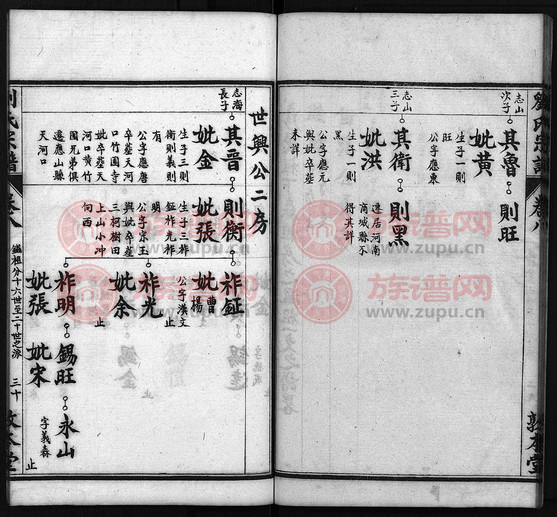 劉氏宗譜
卷八
敦本堂
志山次子
其魯
則旺
妣黃
生子一則旺
公字應東
志山三子
其衛
則黑
遷居河南商城縣不得其詳
妣洪
生子一則黑
公字應元
與妣卒塟未詳
族谱网
www.zupu.cn
世興公二房
志海長子
其晋
則衡
祚鉦
妣曹楊
公字漢文
止
妣金
生子三則衡則義則明
公字應唐
卒塟天河口竹園寺
妣卒塟天河口黃竹園兄弟俱遷應山縣天河口
妣張
生子三祚鉦祚光祚有
公字乐玉
與妣卒塟三柯樹田上山小冲向西
祚光
妣余
止
祚明
錫旺
永山
字義森
止
妣張
妣宋
鑑祖分十六世至二十世之派
三十
敦本堂
劉氏宗譜
卷八